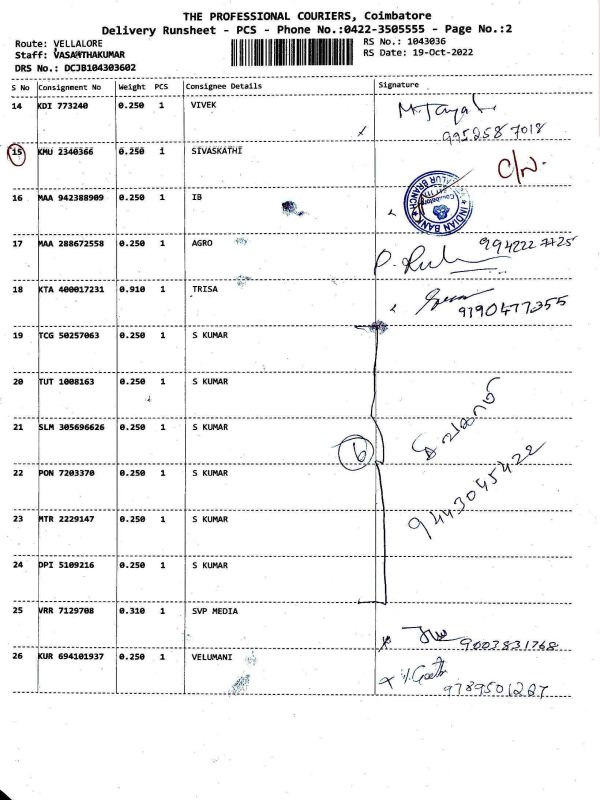 THE PROFESSIONAL COURIERS, Coimbatore
Delivery Runsheet - PCS - Phone No.:0422-3505555 - Page No.:2
Route: VELLALORE
RS No.: 1043036
Staff: VASANTHAKUMAR
RS Date: 19-Oct-2022
DRS No.: DCJB104303602
S No Consignment No Weight PCS Consignee Details Signature
14 KDI 773240 0.250 1 VIVEK
9952587018
15 KMU 2340366 0.250 1 SIVASKATHI
16 MAA 942388909 0.250 1 IB
INDIAN BANK
17 MAA 288672558 0.250 1 AGRO
18 KTA 400017231 0.910 1 TRISA
9790477355
19 TCG 50257063 0.250 1 S KUMAR
20 TUT 1008163 0.250 1 S KUMAR
21 SLM 305696626 0.250 1 S KUMAR
6
22 PON 7203370 0.250 1 S KUMAR
9443045422
23 MTR 2229147 0.250 1 S KUMAR
24 DPI 5109216 0.250 1 S KUMAR
25 VRR 7129708 0.310 1 SVP MEDIA
9003831768
26 KUR 694101937 0.250 1 VELUMANI
9789501287